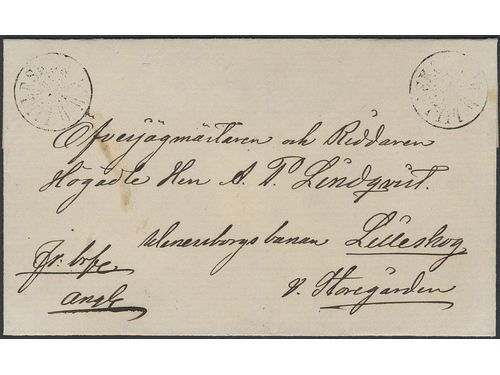 Öfverjägmästaren och Riddaren
Högädle Herr A. P. Lindqvist.
Wenersborgsbanan Lilleskog
Fr: brfe v. Storegården